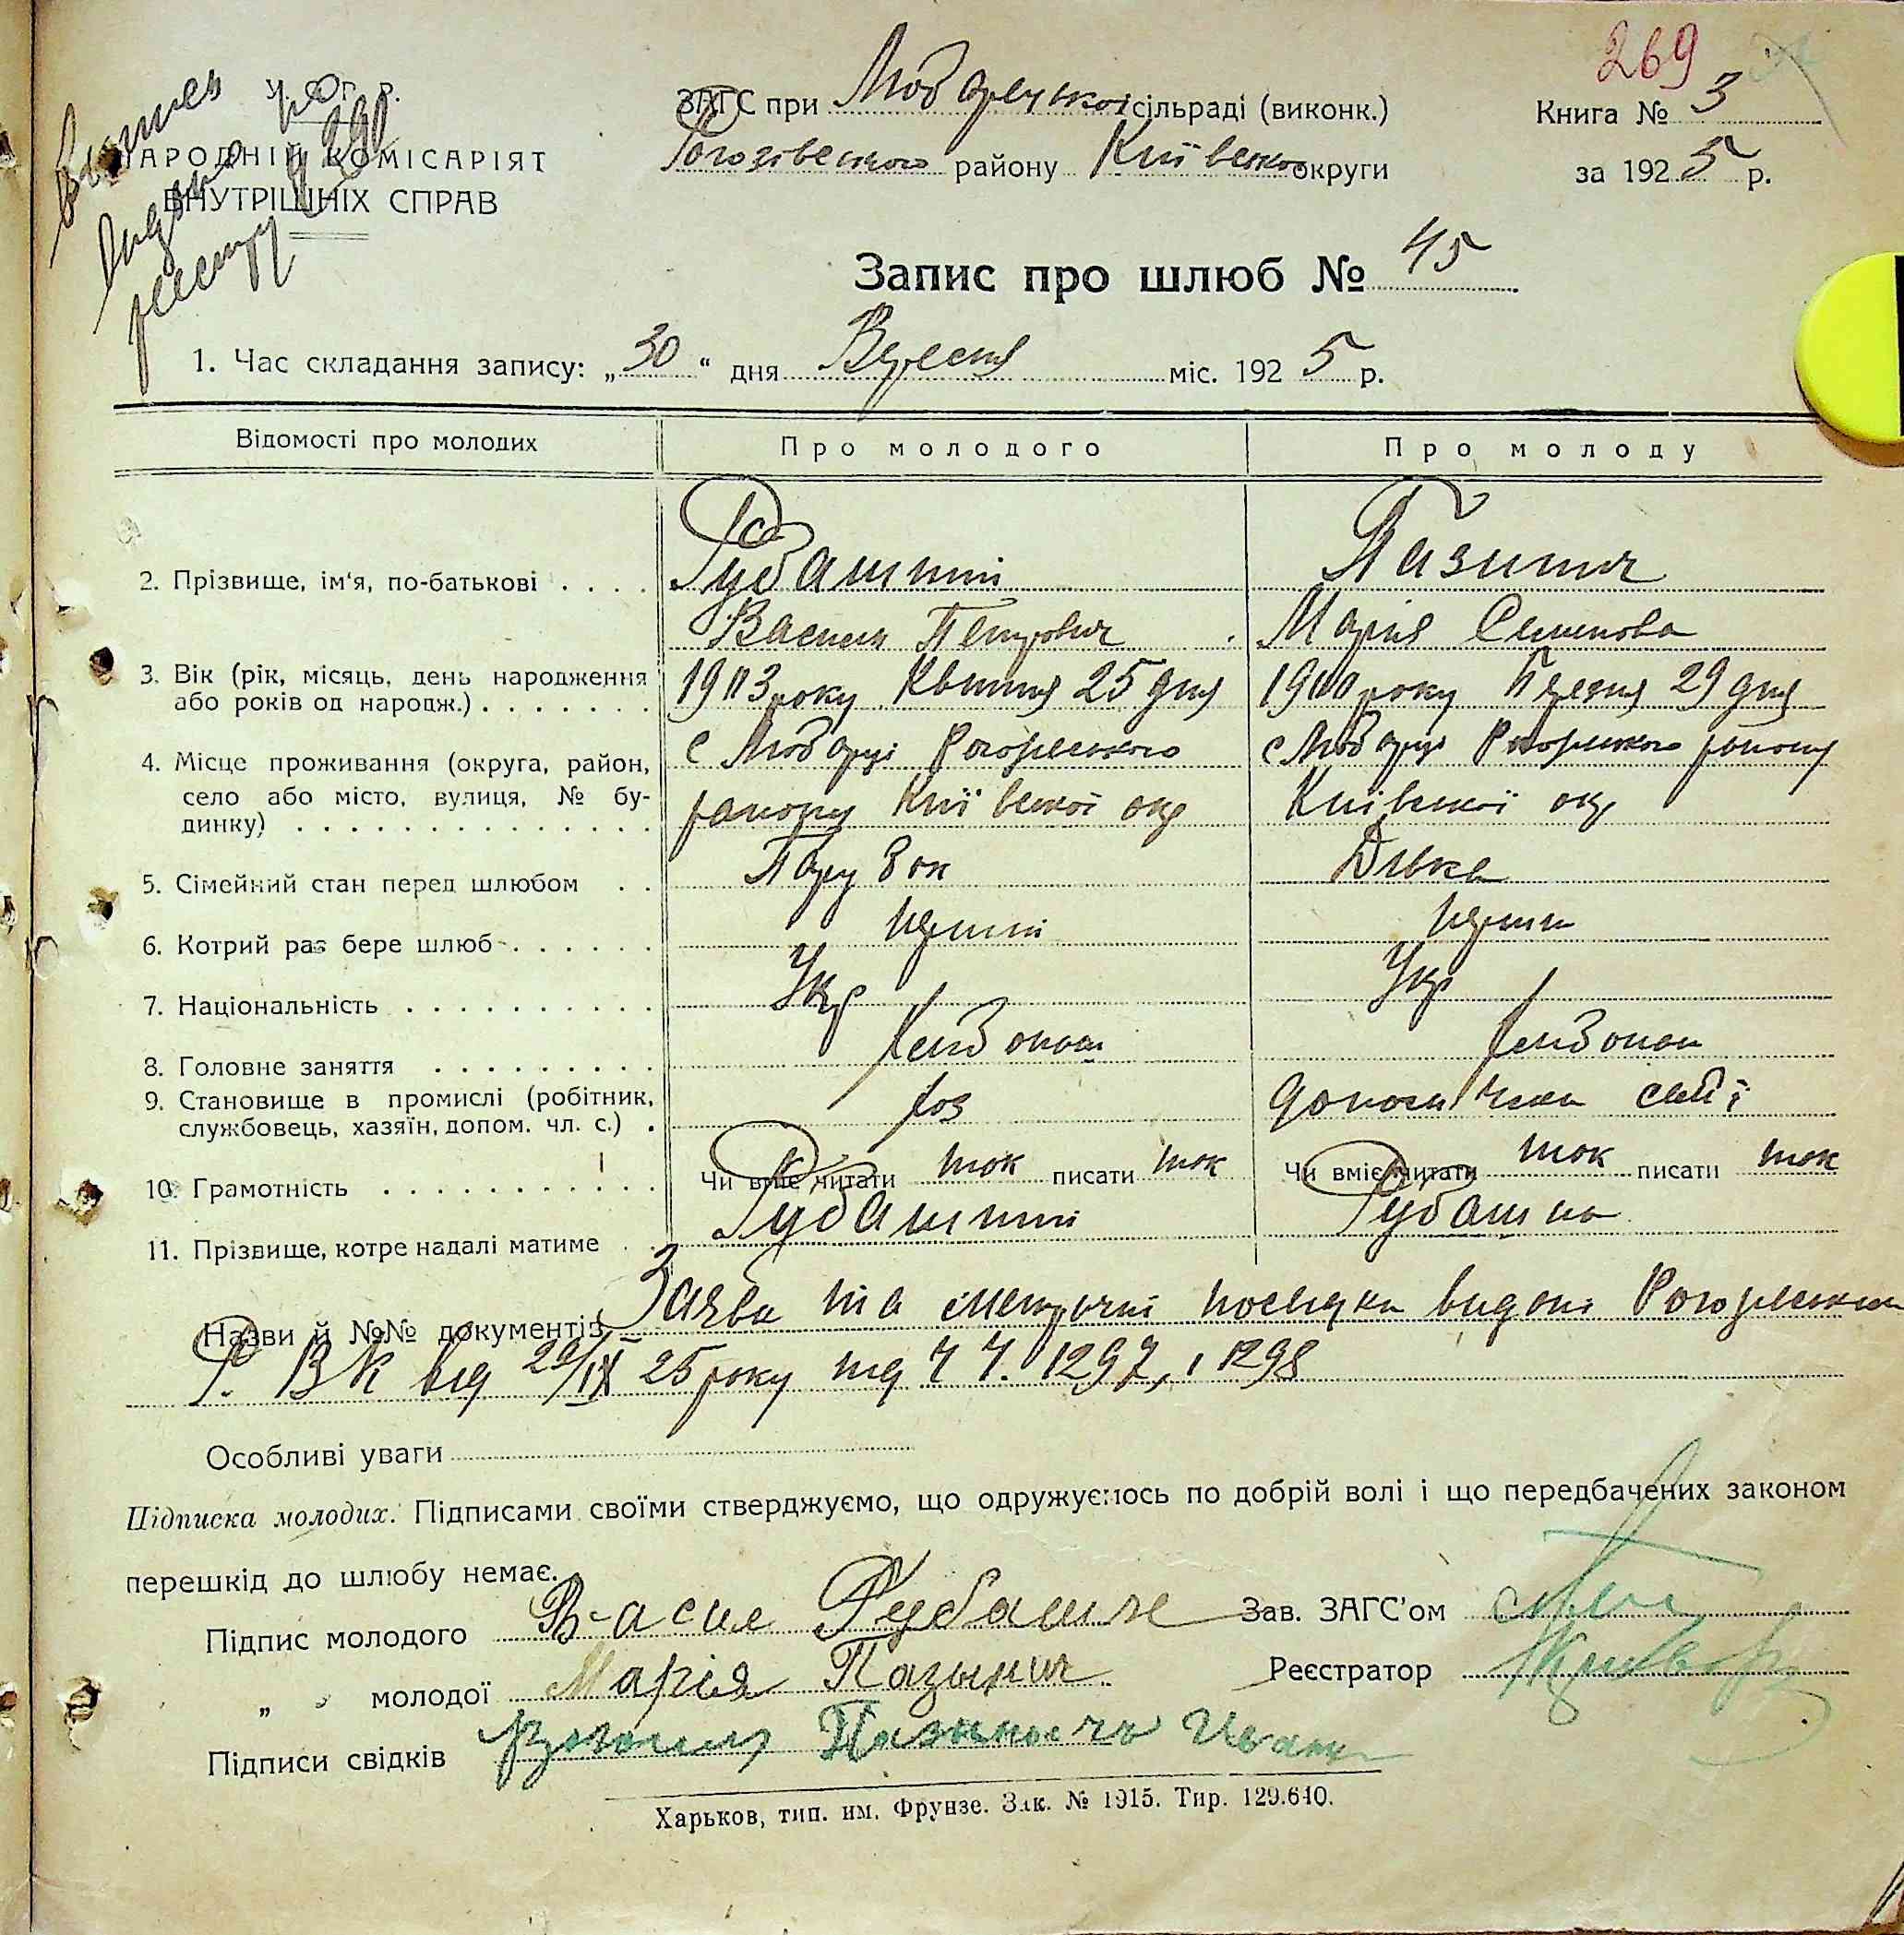 269
У. С. Р. Р.
НАРОДНІЙ КОМІСАРІЯТ
ВНУТРІШНІХ СПРАВ
Витяг
видано
реєстру
ЗАГС при Любарецької сільраді (виконк.)
району Київської округи
Книга № 3
за 1925 р.
Запис про шлюб № 45
1. Час складання запису: „30“ дня Вересня міс. 1925 р.
Відомості про молодих
Про молодого
Про молоду
2. Прізвище, ім'я, по-батькові . . . .
Рубашний
Василь Петрович
Пазинич
Марія Семенова
3. Вік (рік, місяць, день народження
або років од народж.) . . . . . . .
1903 року Квітня 25 дня
1900 року 29 дня
4. Місце проживання (округа, район,
село або місто, вулиця, № бу-
динку) . . . . . . . . . . . . . .
с Любарці
району Київської окр
с Любарці району
Київської окр
5. Сімейний стан перед шлюбом . .
Парубок
Дівка
6. Котрий раз бере шлюб . . . . . .
перший
перши
7. Національність . . . . . . . . . .
Укр
Укр
8. Головне заняття . . . . . . . . .
9. Становище в промислі (робітник,
службовець, хазяїн, допом. чл. с.) .
хоз
семї
10. Грамотність . . . . . . . . . . .
Чи вміє читати так писати так
Чи вміє читати так писати так
11. Прізвище, котре надалі матиме . .
Рубашний
Рубашна
Назви й №№ документів Заява та метричні посвідки видані
Р. В К від 29/IX 25 року під Ч Ч. 1297, і 1298
Особливі уваги
Підписка молодих. Підписами своїми стверджуємо, що одружуємось по добрій волі і що передбачених законом
перешкід до шлюбу немає.
Підпис молодого Васил Рубашне
Зав. ЗАГС'ом
„ „ молодої Марія Пазынич
Реєстратор
Підписи свідків
Харьков, тип. им. Фрунзе. Зак. № 1915. Тир. 129.640.